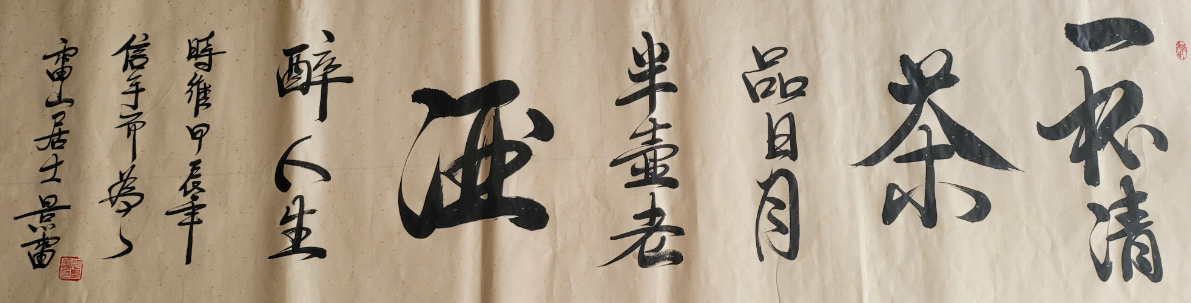 一杯清
茶
品日月
半壶老
酒
醉人生
時維甲辰年
信手而為
雷山居士景雷